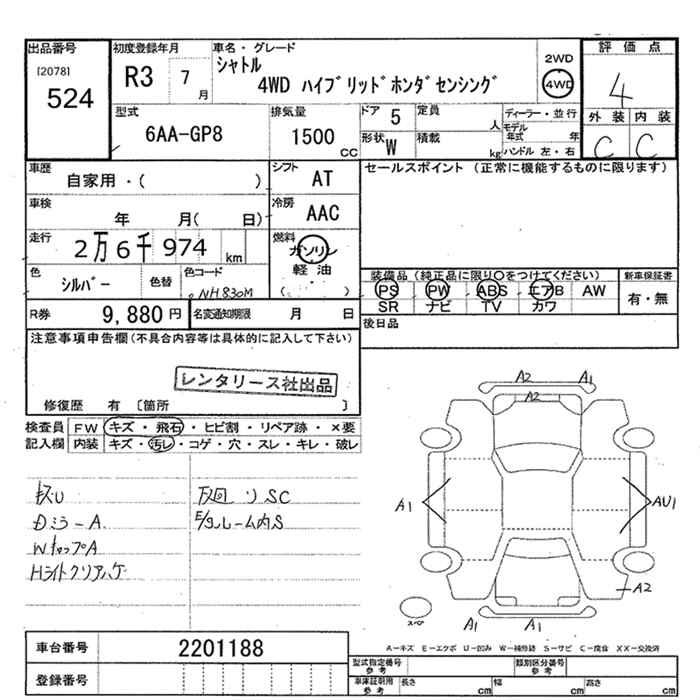 出品番号
[2078]
524
初度登録年月
R3 7月
車名・グレード
シャトル
4WD ハイブリッドホンダセンシング
2WD
4WD
評価点
4
外装 内装
C C
型式
6AA-GP8
排気量
1500 CC
ドア 5
定員 人
形状 W
積載 kg
ディーラー・並行
モデル年式 年
ハンドル 左・右
車歴
自家用・( )
シフト AT
セールスポイント (正常に機能するものに限ります)
車検
年 月( 日)
冷房 AAC
走行
2万6千974 km
燃料
ガソリン
軽油
( )
色
シルバー
色替
色コード
NH830M
装備品 (純正品に限り○をつけてください)
新車保証書
PS PW ABS エアB AW
SR ナビ TV カワ
有・無
R券 9,880 円
名変通知期限 月 日
後日品
注意事項申告欄(不具合内容等は具体的に記入して下さい)
レンタリース社出品
修復歴 有 〔箇所 〕
検査員 FW キズ・飛石・ヒビ割・リペア跡・×要
記入欄 内装 キズ・汚レ・コゲ・穴・スレ・キレ・破レ
Dミラ-A
WキャップA
Hライトクリアハゲ
下廻リSC
E/gルーム内S
A2 A1
A2
A1
AU1
A2
A1 A1
スペア
A-キズ E-エクボ U-凹み W-補修跡 S-サビ C-腐食 XX-交換済
車台番号 2201188
登録番号
型式指定番号 参考
類別区分番号 参考
車庫証明用 参考 長さ cm 幅 cm 高さ cm